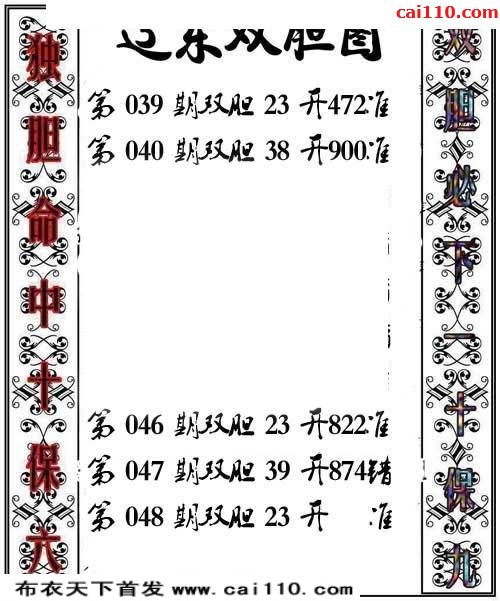 cai110.com
辽东双胆图
独胆命中十保六
第 039 期双胆 23 开472准
第 040 期双胆 38 开900准
第 046 期双胆 23 开822准
第 047 期双胆 39 开874错
第 048 期双胆 23 开 准
双胆必下一十保九
布衣天下首发 www.cai110.com